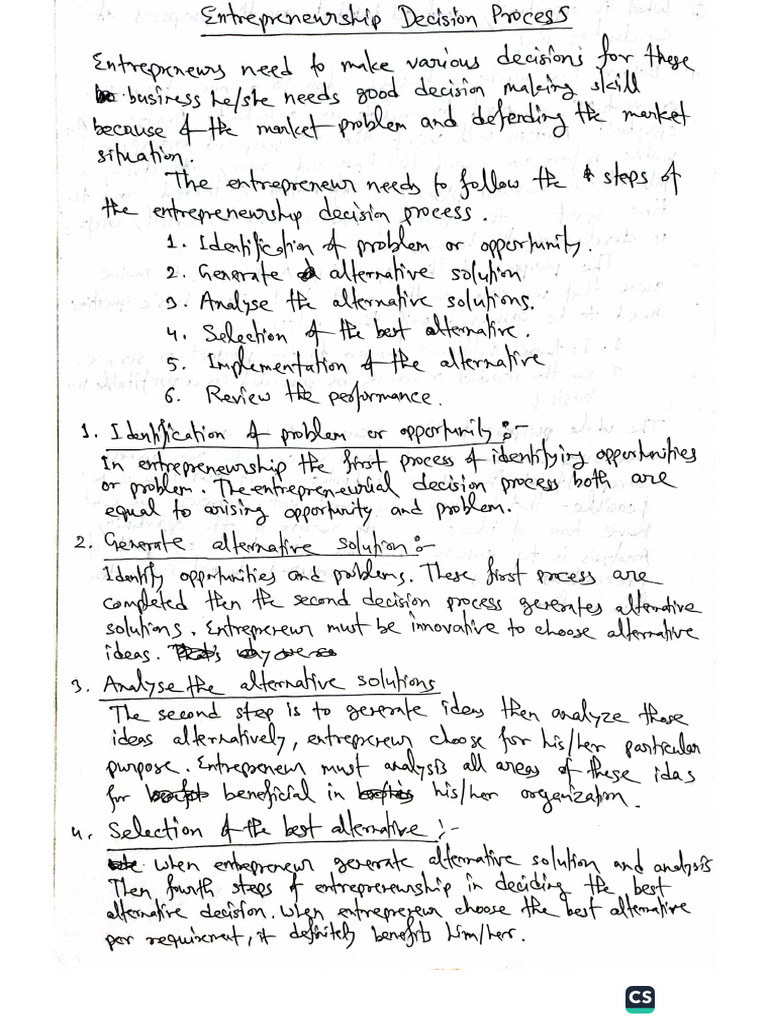 Entrepreneurship Decision Process
Entrepreneurs need to make various decisions for these
business he/she needs good decision making skill
because of the market problem and defending the market
situation.
The entrepreneur needs to follow the steps of
the entrepreneurship decision process.
1. Identification of problem or opportunity.
2. Generate alternative solution
3. Analyse the alternative solutions.
4. Selection of the best alternative.
5. Implementation of the alternative
6. Review the performance.
1. Identification of problem or opportunity :-
In entrepreneurship the first process of identifying opportunities
or problem. The entrepreneurial decision process both are
equal to arising opportunity and problem.
2. Generate alternative solution :-
Identify opportunities and problems. These first process are
completed then the second decision process generates alternative
solutions. Entrepreneur must be innovative to choose alternative
ideas.
3. Analyse the alternative solutions
The second step is to generate ideas then analyze those
ideas alternatively, entrepreneur choose for his/her particular
purpose. Entrepreneur must analysis all areas of these idas
for beneficial in his/her organization.
4. Selection of the best alternative :-
when entrepreneur generate alternative solution and analysis
Then fourth steps of entrepreneurship in deciding the best
alternative decision. when entrepreneur choose the best alternative
per requirement, it definitely benefits him/her.
CS